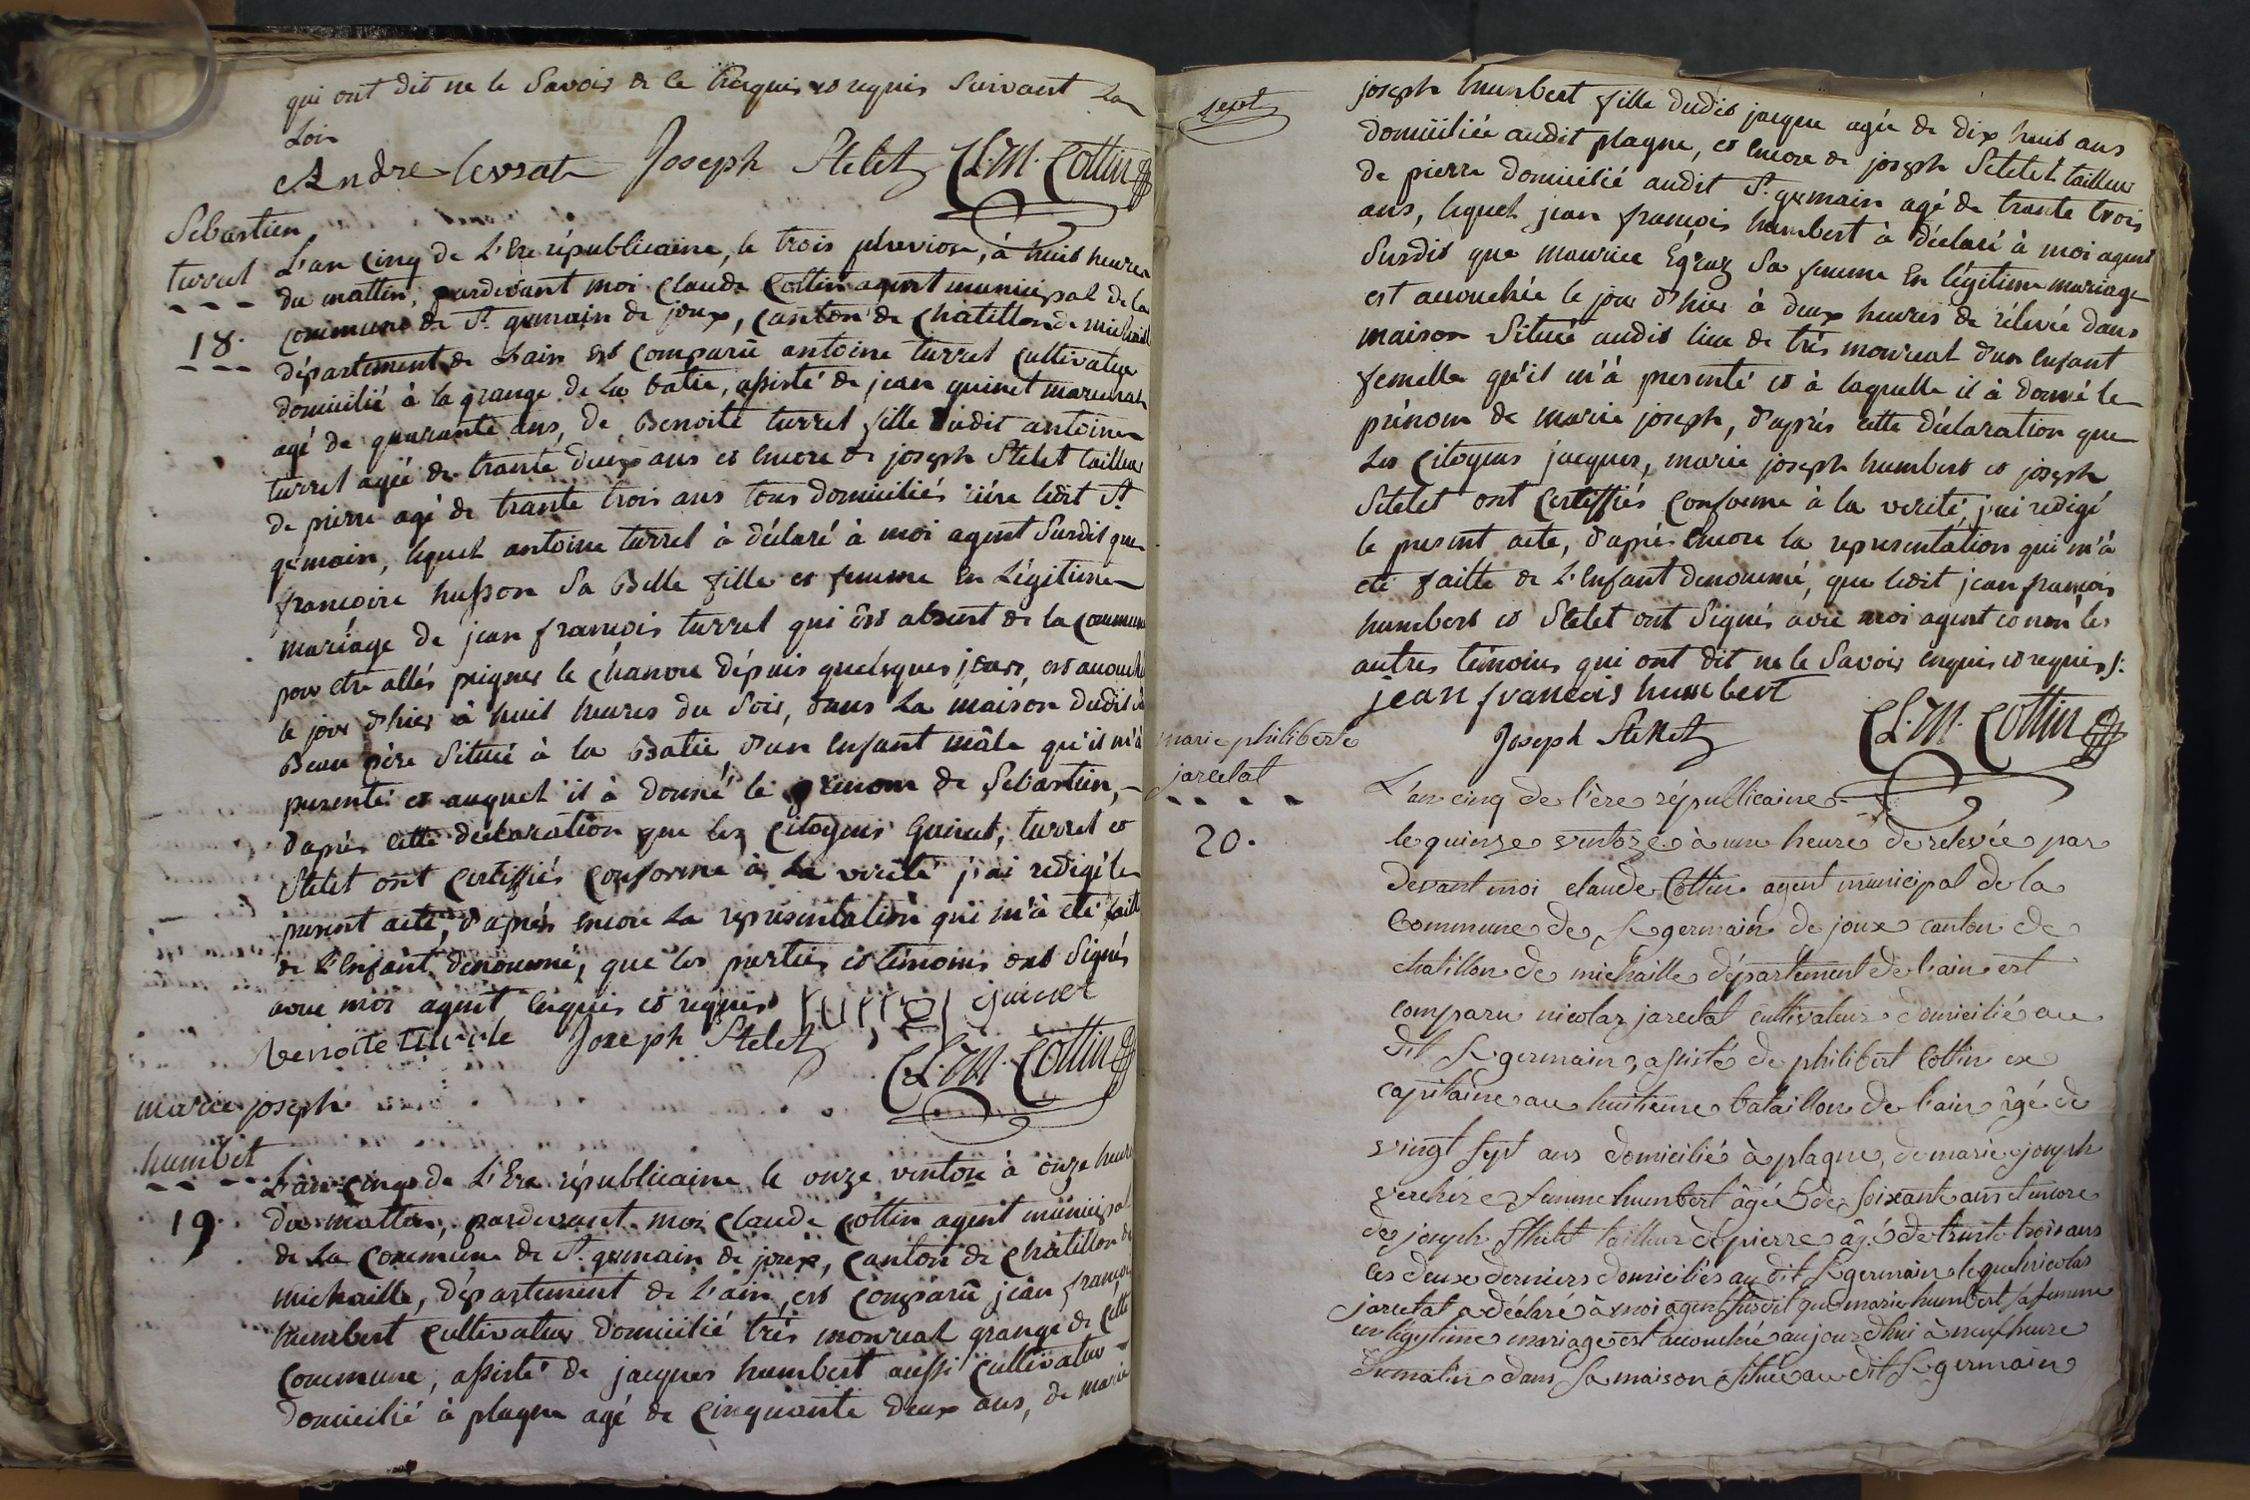 qui ont dit ne le Savoir de ce Enquis et requis Suivant La
Loix
Andre levrat Joseph Stelet Cl. M. Cottin
Sebastien
turrel
18.
L'an Cinq de L'Ere républicaine, le trois pluviose, à huit heures
du mattin, pardevant moi Claude Cottin agent municipal de la
commune de St. germain de joux, Canton de Chatillon de michaille
département de Lain est Comparu antoine turrel Cultivateur
domicilié à la grange de La batie, assisté de jean guinet marechal
agé de quarante ans, de Benoite turrel fille dudit antoine
turrel agée de trante deux ans et encore de joseph Stelet tailleur
de pierre agé de trante trois ans tous domiciliés riére ledit St.
germain, lequel antoine turrel à déclaré à moi agent Susdit que
françoise husson Sa Belle fille et femme en Légitime
mariage de jean françois turrel qui est absent de la Commune
pour etre allés peigner le Chanvre dépuis quelsques jours, est accouché
le jour d'hier à huit heures du Soir, dans La maison dudit
Beau père Situé à la Batie d'un Enfant mâle qu'il m'à
presenté et auquel il à donné le prenom de Sebastien,
d'après cette declaration que les Citoyens Guinet, turrel et
Stelet ont Certiffiés Conforme à La verité j'ai redigé le
present acte, d'après encore La représentation qui m'à eté faitte
de L'Enfant dénommé, que les parties et témoins ont Signés
avec moi agent enquis et requis turrel guinet
Benoite turrele Joseph Stelet
Cl. M. Cottin
marie joseph
humbert
19.
L'an Cinq de L'Ere républicaine le onze ventose à onze heures
du mattin, pardevant moi Claude Cottin agent municipal
de La Commune de St. germain de joux, Canton de Chatillon de
michaille, département de L'ain, est Comparu jean françois
humbert Cultivateur domicilié trés monreal grange de Cette
Commune, assisté de jacques humbert aussi Cultivateur
domicilié à plagne agé de Cinquante deux ans, de marie
sept
joseph humbert fille dudit jacque agée de dix huit ans
domiciliée audit plagne, et encore de joseph Stelet tailleur
de pierre domicilié audit St. germain agé de trante trois
ans, lequel jean françois humbert à déclaré à moi agent
Susdit que maurice Egraz Sa femme En légitime mariage
est accouchée le jour d'hier à deux heures de rélévée dans
maison Située audit lieu de trés monreal d'un enfant
femelle qu'il m'à presenté et à laquelle il à donné le
prénom de marie joseph, d'après cette déclaration que
Les Citoyens jacques, marie joseph humbert et joseph
Stelet ont Certiffiés Conforme à la verité j'ai redigé
le present acte, d'après encore la representation qui m'à
eté faitte de L'Enfant denommé, que ledit jean françois
humbert et Stelet ont Signés avec moi agent et non les
autres témoins qui ont dit ne le Savoir enquis et requis s.
jean francois humbert
Joseph Stellet Cl. M. Cottin
marie philiberte
jarcelat
20.
L'an cinq de l'ère républicaine
le quinze ventoze à une heure de relevée par
devant moi claude Cottin agent municipal de la
Commune de St germain de joux canton de
chatillon de michaille département de l'ain est
comparu nicolas jarcetat cultivateur domicilié au
dit St germain, assisté de philibert Cottin ex
capitaine au huitieme bataillon de l'ain âgé de
vingt sept ans domicilié à plagne, de marie joseph
verchère femme humbert âgée de soixante ans et encore
de joseph Sthelet tailleur de pierre âgé de trente trois ans
les deux derniers domiciliés au dit St germain lequel nicolas
jarcetat a déclaré à moi agent susdit que marie humbert sa femme
en légitime mariage est accouchée aujourd'hui à neuf heure
du matin dans sa maison située au dit St germain